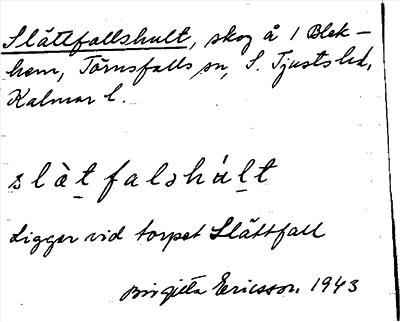 Slättfallshult, skog å 1 Blek-
hem, Törnsfalls sn, S. Tjusts hd,
Kalmar l.
slàt̠falshúl̠t
Ligger vid torpet Slättfall
Birgitta Ericsson 1943